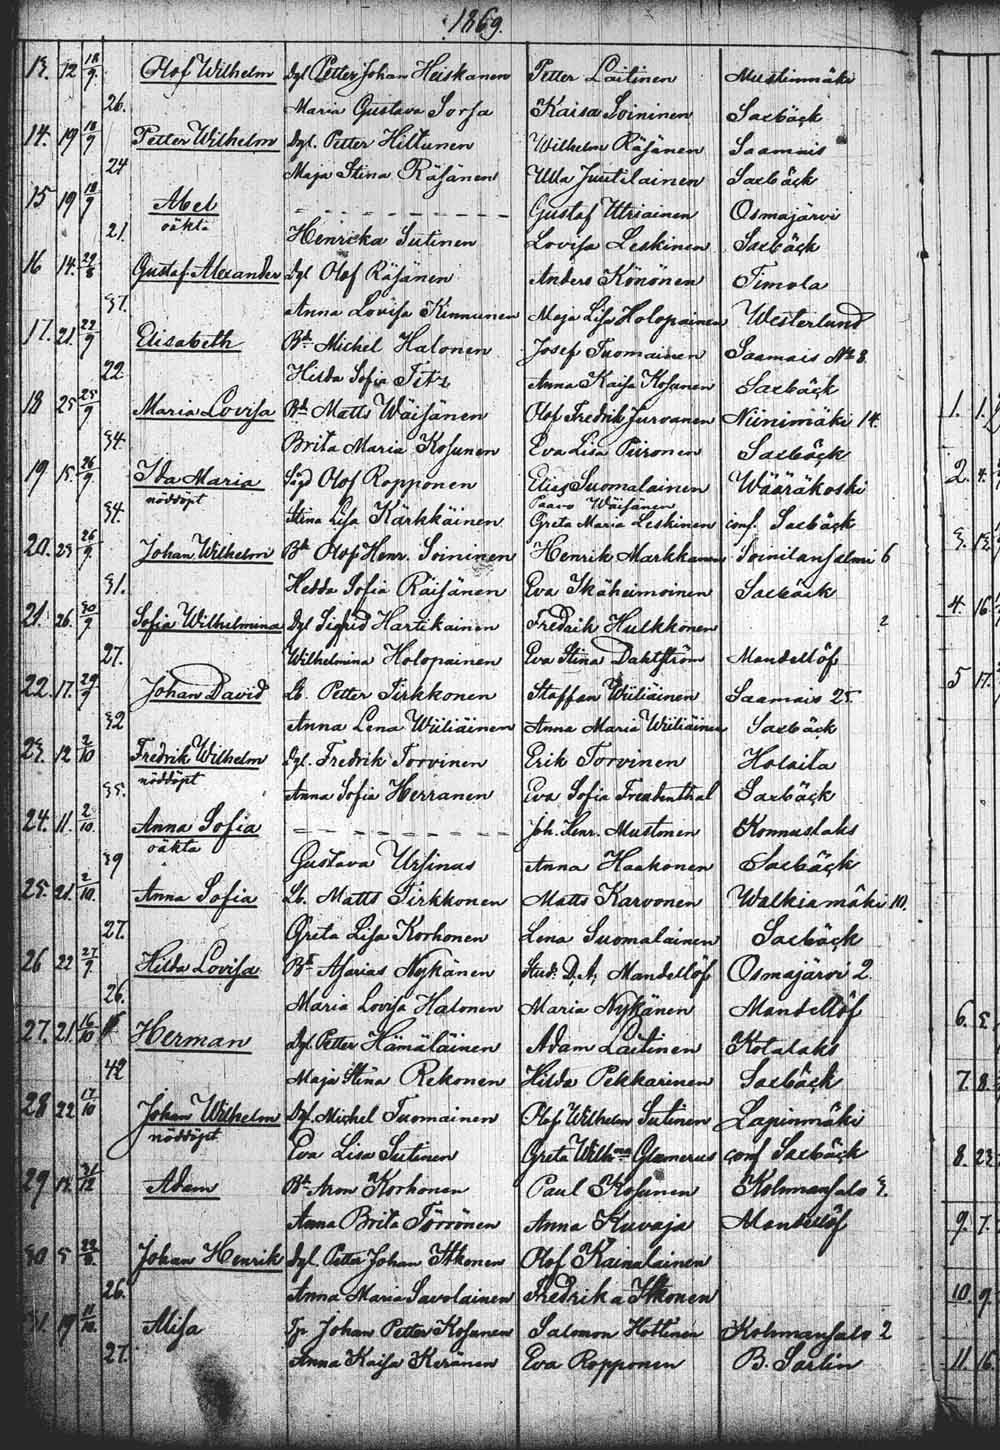 1869.
13. 12 18/9. Olof Wilhelm Dgl Petter Johan Heiskanen Petter Laitinen Mustinmäki
26. Maria Gustava Sorsa Kaisa Soininen Saxbäck
14. 19 18/9 Petter Wilhelm Dgl. Petter Hiltunen Wilhelm Räsänen Saamais
24 Maja Stina Räsänen Ulla Juutilainen Saxbäck
15 19 18/9 Abel Gustaf Uttriainen Osmajärvi
oäkta
21. Henrika Sutinen Lovisa Leskinen Saxbäck
16 14. Gustaf Alexander Dgl Olof Räsänen Anders Könönen Timola
37. Anna Lovisa Kinnunen Maja Lisa Holopainen Westerlund
17. 21. 22/9 Elisabeth Bd. Michel Halonen Josef Tuomainen Saamais No 8.
22. Hilda Sofia Titz Anna Kaisa Kosunen Saxbäck
18 25 25/9 Maria Lovisa Bd. Matts Wäisänen Olof Fredrik Jurvanen Niinimäki 14.
34. Brita Maria Kosunen Eva Lisa Piironen Saxbäck
19 15. 26/9 Ida Maria Olof Ropponen Elias Suomalainen Wääräkoski
nöddöpt Paavo Wäisänen
34. Stina Lisa Kärkkäinen Greta Maria Leskinen conf. Saxbäck
20. 23 26/9 Johan Wilhelm Bd Olof Henr. Soininen Henrik Markkanen Soinilansalmi 6
31. Hedda Sofia Räisänen Eva Ikäheimoinen Saxbäck
21. 26. 30/9 Sofia Wilhelmina Dgl Sigfrid Hartikainen Fredrik Hulkkonen 2
27. Wilhelmina Holopainen Eva Stina Dahlström Mandellöf
22. 17. 29/9 Johan David Lb. Petter Tirkkonen Staffan Wiiliäinen Saamais 25.
32 Anna Lena Wiiliäinen Anna Maria Wiiliäinen Saxbäck
23. 12 2/10 Fredrik Wilhelm Dgl. Fredrik Torvinen Erik Torvinen
nöddöpt
35. Anna Sofia Herranen Eva Sofia Freudenthal Saxbäck
24. 11. 2/10. Anna Sofia Joh. Henr. Mustonen Konnuslaks
oäkta
39 Gustava Ursinus Anna Haakonen Saxbäck
25. 21. 2/10. Anna Sofia Lb. Matts Tirkkonen Matts Karvonen Walkiamäki 10.
27. Greta Lisa Korhonen Lena Suomalainen Saxbäck
26 22 27/9. Hilda Lovisa Bd Asarias Nykänen Stud. D. A. Mandellöf Osmajärvi 2.
26. Maria Lovisa Halonen Maria Nykänen Mandellöf
27. 21. 16/10 Herman Dgl. Petter Hämäläinen Adam Laitinen Kotalaks
42 Maja Stina Rekonen Hilda Pekkarinen Saxbäck
28 22 17/10 Johan Wilhelm Dgl. Michel Tuomainen Olof Wilhelm Sutinen Lapinmäki
nöddöpt
Eva Lisa Sutinen Greta Wilhna conf Saxbäck
29 Adam Bd. Aron Korhonen Paul Kosunen Kohmansalo 3.
Anna Brita Törrönen Anna Kuvaja Mandellöf
30 5 Johan Henrik Dgl. Petter Johan Itkonen Olof Kainulainen
26. Anna Maria Savolainen Fredrika Itkonen
31. 19 Alisa Tp Johan Petter Kosunen Salomon Hottinen Kohmansalo 2
27. Anna Kaisa Keränen Eva Ropponen B. Sarlin
1. 1.
2. 4.
3. 13.
4. 16
5 17.
6. 5.
7. 8.
8. 23.
9. 7.
10. 9.
11. 16.